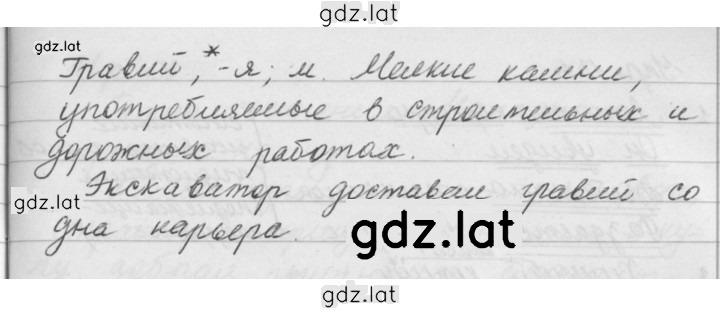 gdz.lat
gdz.lat
Гравий,*-я; м. Мелкие камни,
употребляемые в строительных и
дорожных работах.
Экскаватор доставал гравий со
gdz.lat
дна карьера.
gdz.lat
gdz.lat